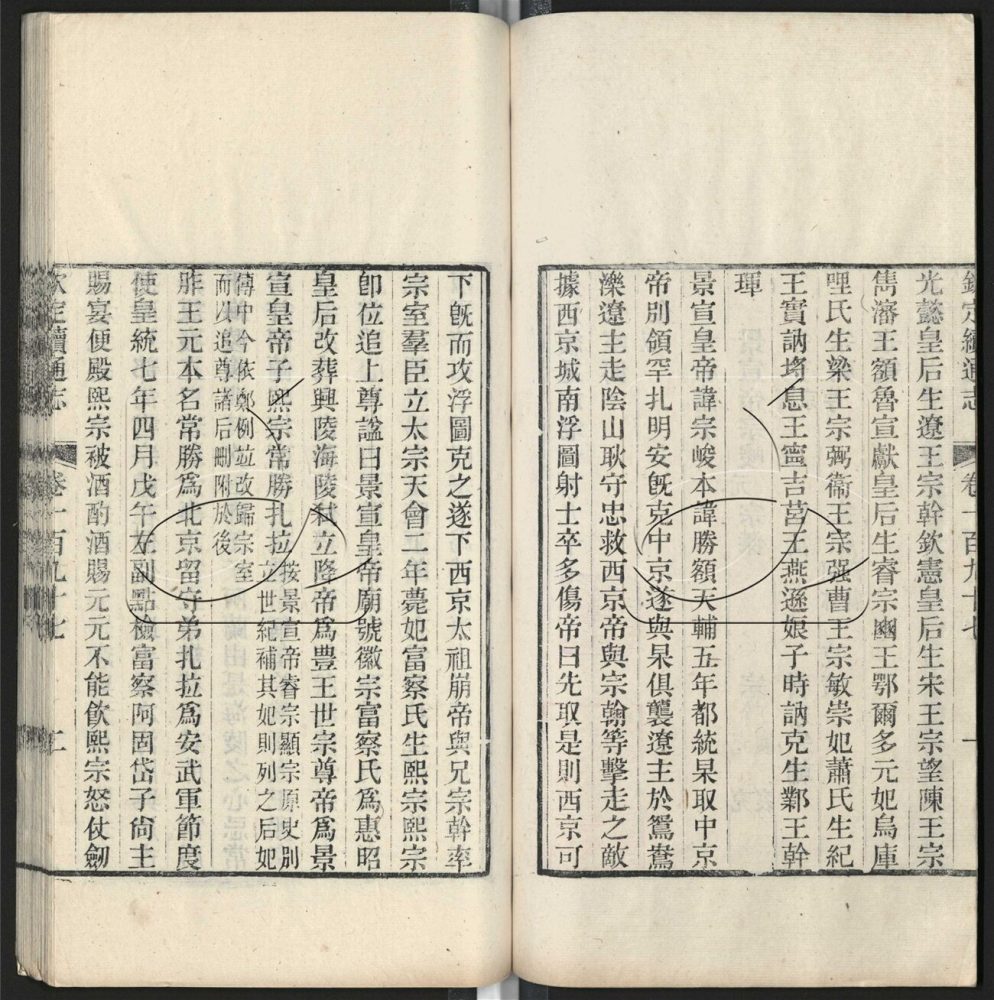 欽定續通志 卷一百九十七 一
光懿皇后生遼王宗幹欽憲皇后生宋王宗望陳王宗
雋瀋王額魯宣獻皇后生睿宗豳王鄂爾多元妃烏庫
哩氏生梁王宗弼衞王宗强曹王宗敏崇妃蕭氏生紀
王實訥埓息王寗吉莒王燕遜娘子時訥克生鄴王幹
琿
景宣皇帝諱宗峻本諱勝額天輔五年都統杲取中京
帝別領罕扎明安旣克中京遂與杲俱襲遼主於鴛鴦
濼遼主走陰山耿守忠救西京帝與宗翰等擊走之敵
據西京城南浮圖射士卒多傷帝曰先取是則西京可
下旣而攻浮圖克之遂下西京太祖崩帝與兄宗幹率
宗室羣臣立太宗天會二年薨妃富察氏生熙宗熙宗
卽位追上尊諡曰景宣皇帝廟號徽宗富察氏爲惠昭
皇后改葬興陵海陵弒立降帝爲豊王世宗尊帝爲景
宣皇帝子熙宗常勝扎拉按景宣帝睿宗顯宗原史別
立世紀補其妃則列之后妃
傳中今依鄭例竝改歸宗室
而以追尊諸后刪附於後
胙王元本名常勝爲北京留守弟扎拉爲安武軍節度
使皇統七年四月戊午左副點檢富察阿固岱子尙主
賜宴便殿熙宗被酒酌酒賜元元不能飮熙宗怒仗劒
欽定續通志 卷一百九十七 二